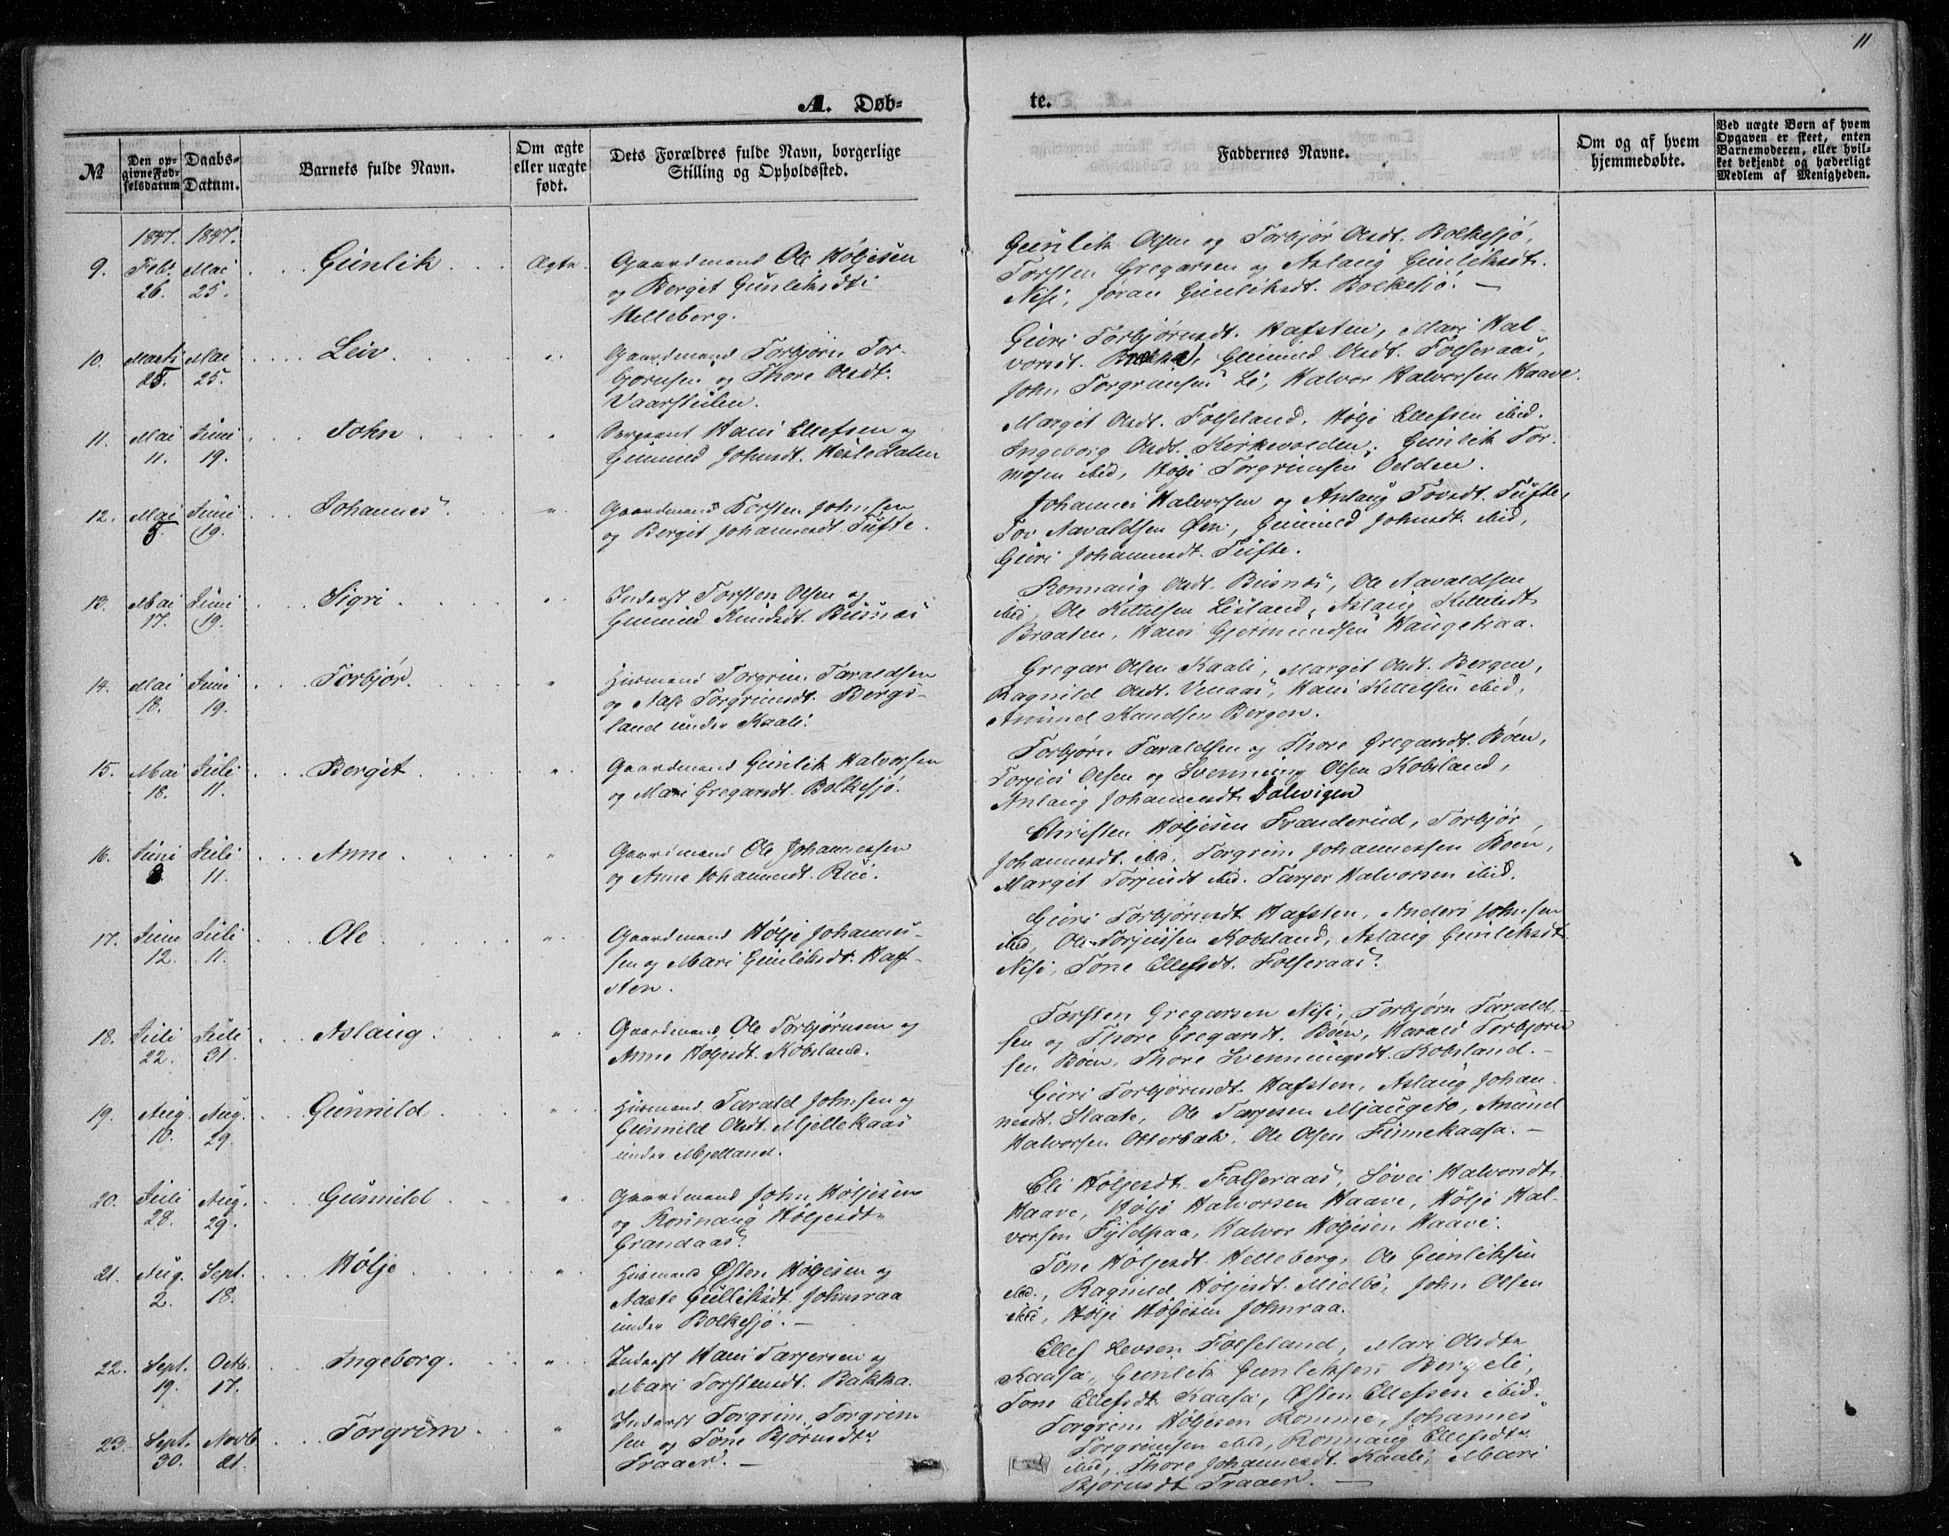 11
A. Døb-
te.
№
Den op-
givne Fød-
selsdatum
Daabs-
Datum.
Barnets fulde Navn.
Om ægte
eller uægte
født.
Dets Forældres fulde Navn, borgerlige
Stilling og Opholdssted.
Faddernes Navne.
Om og af hvem
hjemmedøbte.
Ved uægte Børn af hvem
Opgaven er skeet, enten
Barnemoderen, eller hvil-
ket bekjendt og hæderligt
Medlem af Menigheden.
1847. 1847.
9. Feb. 26. Mai 25. Gunlik Ægte
Gaardmand Ole Höljesen
og Bergit Gunliksdt.
Helleberg.
Gunlik Olsen og Torbjör Olsdt. Bolkesjö,
Torsten Gregarsen og Aslaug Gunliksdt.
Nisi, Jöran Gunliksdt. Bolkesjö. —
10. Mai 25. Leiv
Gaardmand Torbjörn Tor-
björnsen og Thore Olsdt.
Vaarstulen.
Guri Torbjörnsdt. Hafsten, Mari Hal-
vorsdt. Gunnild Olsdt. Folseraas,
John Torgrimsen Li, Halvor Halvorsen Haave.
11. Mai 11. Juni 19. John
Sergeant Hans Ellefsen og
Gunnild Johnsdt. Hesledalen
Margit Olsdt. Folseland, Hölje Ellefsen ibid.
Ingeborg Olsdt. Kirkevolden, Gunlik Tor-
mosen ibid, Hölje Torgrimsen Oelden.
12. Mai 5. Juni 19. Johannes
Gaardmand Torsten Johnsen
og Bergit Johannesdt Tufte.
Johannes Halvorsen og Aslaug Tovsdt. Tufte,
Tov Aavaldsen Öen, Gunnild Johnsdt. ibid,
Guri Johannesdt. Tufte.
13. Mai 17. Juni 19. Sigri
Inderst Torsten Olsen og
Gunnild Knudsdt. Busnæs
Ronnaug Olsdt. Busnæs, Ole Aavaldsen
ibid, Ole Kittilsen Lisland, Aslaug Kittilsdt.
Braaten, Hans Gjermundsen Haugetraa.
14. Mai 18. Juni 19. Torbjör
Husmand Torgrim Taraldsen
og Aase Torgrimsdt. Bergs-
land under Kaali.
Gregar Olsen Kaali, Margit Olsdt. Bergen,
Ragnild Olsdt. Venaas, Hans Kittilsen ibid,
Anund Knudsen Bergen.
15. Mai 18. Juli 11. Bergit
Gaardmand Gunlik Halvorsen
og Mari Gregarsdt. Bolkesjö.
Torbjörn Taraldsen og Thore Gregarsdt. Böen,
Torjus Olsen og Svenning Olsen Kobsland,
Aslaug Johannesdt Dalvigen
16. Juni Juli 11. Anne
Gaardmand Ole Johannessen
og Anne Johannesdt. Rue.
Christen Höljesen Tranderud, Torbjör
Johannesdt. ibid. Torgrim Johannessen Böen,
Margit Torjusdt ibid. Tarjer Halvorsen ibid.
17. Juni 12. Juli 11. Ole
Gaardmand Hölje Johannes-
sen og Mari Gunliksdt. Haf-
sten.
Guri Torbjörnsdt. Hafsten, Anders Johnsen
ibid, Ole Torjussen Kobsland, Aslaug Gunliksdt.
Nisi, Tone Ellefsdt. Folseraas.
18. Juli 22. Juli 31. Aslaug
Gaardmand Ole Torbjörnsen og
Anne Höljesdt. Kobsland.
Torsten Gregarsen Nisi, Torbjörn Tarald-
sen og Thore Gregarsdt. Böen, Harald Torbjörn
sen Böen, Thore Svenningsdt. Kobsland. —
19. Aug. 10. Aug. 29. Gunnild
Husmand Tarald Johnsen og
Gunnild Olsdt. Mjellekaas
under Mjelland.
Guri Torbjörnsdt. Hafsten, Aslaug Johan-
nesdt. Slaate, Ole Tarjesen Mjaugeto, Anund
Halvorsen Otterbæk, Ole Olsen Finnekaasa. —
20. Juli 28. Aug. 29. Gunnild
Gaardmand John Höljesen
og Ronnaug Höljesdt.
Grandaas.
Eli Höljesdt. Folseraas, Sövei Halvorsdt.
Haave, Hölje Halvorsen Haave, Hölje Hal-
vorsen Fyldpaa, Halvor Höljesen Haave.
21. Aug. 2. Sept. 18. Hölje
Husmand Östen Höljesen og
Aaste Gulliksdt. Johnsraa
under Bolkesjö. —
Tone Höljesdt. Helleberg, Ole Gunliksen
ibid., Ragnild Höljesdt. Midbö, John Olsen
ibid, Hölje Höljesen Johnraa.
22. Sept. 19. Octb. 17. Ingeborg.
Inderst Hans Tarjersen og
Mari Torstensdt. Bakka.
Ellef Levsen Folseland, Mari Olsdt.
Kaasa, Gunlik Gunliksen Bergeli,
Tone Ellefsdt. Kaasa, Östen Ellefsen ibid.
23. Sept. 30. Novb. 21. Torgrim
Inderst Torgrim Torgrim-
sen og Tone Björnsdt.
Traaer. —
Torgrim Höljesen Romme, Johannes
Torgrimsen ibid, Ronnaug Ellefsdt.
ibid, Thore Johannesdt. Kaali, Mari
Björnsdt Traaer. —